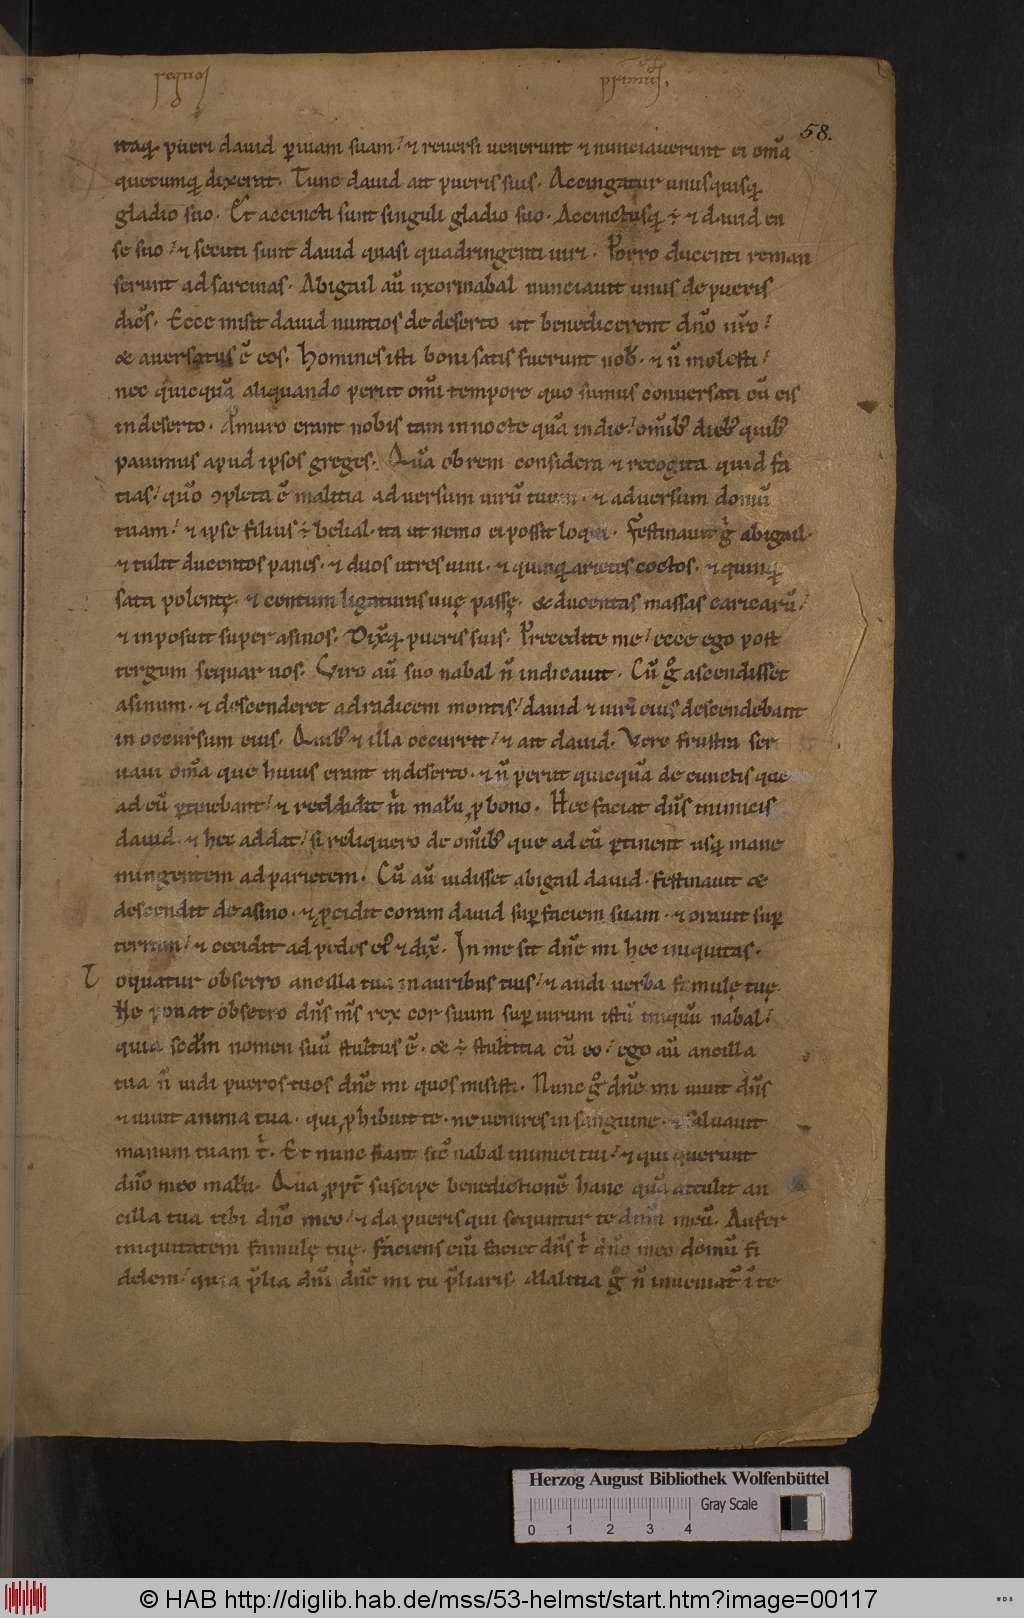 regnoꝝ primus.
58.
itaq; pueri dauid ꝑ uiam suam / ⁊ reuersi uenerunt ⁊ nunciauerunt ei om̄a
quecumq; dixerat. Tunc dauid ait pueris suis. Accingatur unusquisq;
gladio suo. Et accincti sunt singuli gladio suo. Accinctusq; ÷ ⁊ dauid en
se suo / ⁊ secuti sunt dauid quasi quadringenti uiri. Porro ducenti reman
serunt ad sarcinas. Abigail aū uxori nabal nunciauit unus de pueris
dicēs. Ecce misit dauid nuntios de deserto ut benedicerent dn̄o nr̄o /
& auersatus ē eos. Homines isti boni satis fuerunt nob᷒. ⁊ n̄ molesti /
nec quicquā aliquando periit om̄i tempore quo sumus conuersati cū eis
in deserto. Pro muro erant nobis tam in nocte quā in die / omīb; dieb; quib;
pauimus apud ipsos greges. Quā ob rem considera ⁊ recogita quid fa
tias / qūo ꝯpleta ē malitia aduersum uirū tuum. ⁊ aduersum domū
tuam / ⁊ ipse filius ÷ belial. ita ut nemo ei possit loqui. Festinauit gͥ abigail.
⁊ tulit ducentos panes. ⁊ duos utres uini. ⁊ quinq; arietes coctos. ⁊ quinq;
sata polentę. ⁊ centum ligaturas uuę passę. & ducentas massas caricarū /
⁊ inposuit super asinos. Dixitq; pueris suis. Precedite me / ecce ego post
tergum sequar uos. Viro aū suo nabal n̄ indicauit. Cū gͦ ascendisset
asinum. ⁊ descenderet ad radicem montis / dauid ⁊ uiri eius descendebant
in occursum eius. Quib; ⁊ illa occurrit / ⁊ ait dauid. Vere frustra ser
uaui om̄a que huius erant in deserto. ⁊ n̄ periit quicquā de cunctis que
ad eū ꝑtinebant / ⁊ reddidit m̄ malū ꝓ bono. Hec faciat dn̄s inimicis
dauid. ⁊ hec addat / si reliquero de omīb; que ad eū ꝑtinent usq; mane
mingentem ad parietem. Cū aū uidisset abigail dauid. festinauit &
descendit de asino. ⁊ ꝓcidit coram dauid suꝑ faciem suam. ⁊ orauit suꝑ
terram / ⁊ cecidit ad pedes ei᷒ ⁊ dix̄. In me sit dn̄e mi hec iniquitas.
Loquatur obsecro ancilla tua in auribus tuis / ⁊ audi uerba famulę tuę.
Ne ponat obsecro dn̄s m̄s rex cor suum suꝑ uirum istū iniquū nabal /
quia secdm̄ nomen suū stultus ē. & ÷ stultitia cū eo / ego aū ancilla
tua n̄ uidi pueros tuos dn̄e mi quos misisti. Nunc gͦ dn̄e mi uiuit dn̄s
⁊ uiuit anima tua. qui ꝓhibuit te. ne uenires in sanguine. ⁊ saluauit
manum tuam tͥ. Et nunc fiant sic̄ nabal inimici tui / ⁊ qui querunt
dn̄o meo malū. Qua ꝓpt̄ suscipe benedictionē hanc quā attulit an
cilla tua tibi dn̄o meo / ⁊ da pueris qui sequntur te dn̄m meū. Aufer
iniquitatem famulę tuę. faciens eni̅ faciet dn̄s tͥ dn̄o meo domū fi
delem / quia p̄lia dn̄i dn̄e mi tu p̄liaris. Malitia gͦ n̄ inueniat᷒ ī te
Herzog August Bibliothek Wolfenbüttel
Gray Scale
0 1 2 3 4
© HAB http://diglib.hab.de/mss/53-helmst/start.htm?image=00117